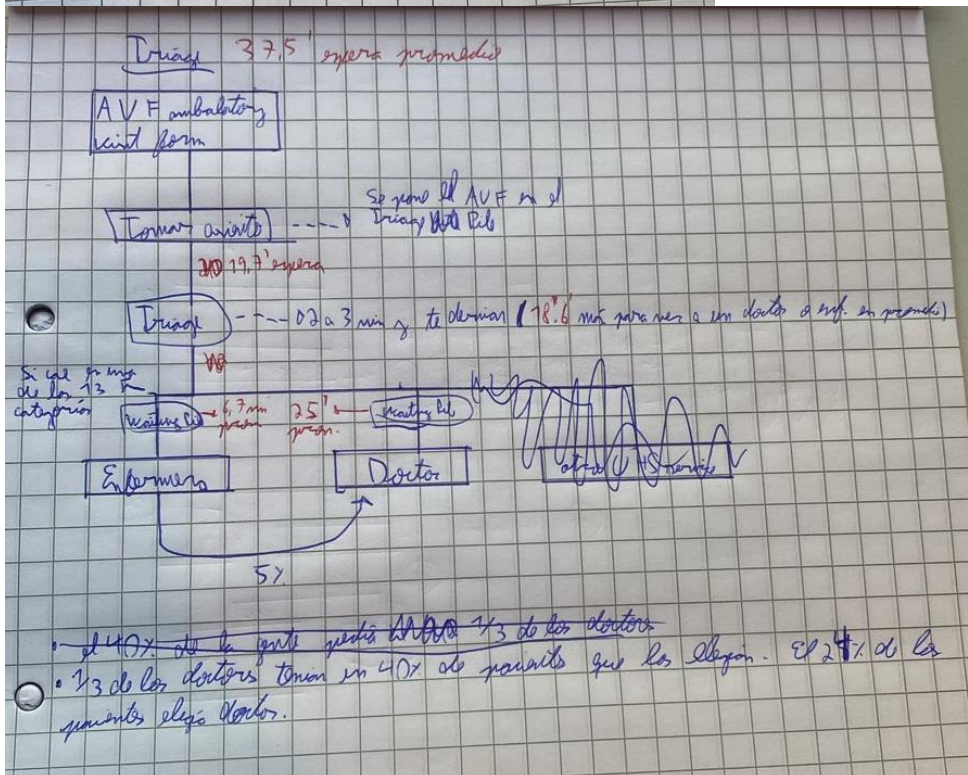 Triage 37,5' espera promedio
AVF ambulatory
visit form
Tomar asiento
Se pone el AVF en el
Triage Pile
19,7' espera
Triage
2 a 3 min y te derivan (18'6 más para ver a un doctor o enf. en promedio)
Si cae en una
de los 13
categorías
Waiting
6,7 min
prom
25'
prom.
Waiting Pile
Enfermera
Doctor
5%
el 40% de la gente pedía 1/3 de los doctores
• 1/3 de los doctores tenían un 40% de pacientes que los elegían. El 24% de los
pacientes elegía doctor.